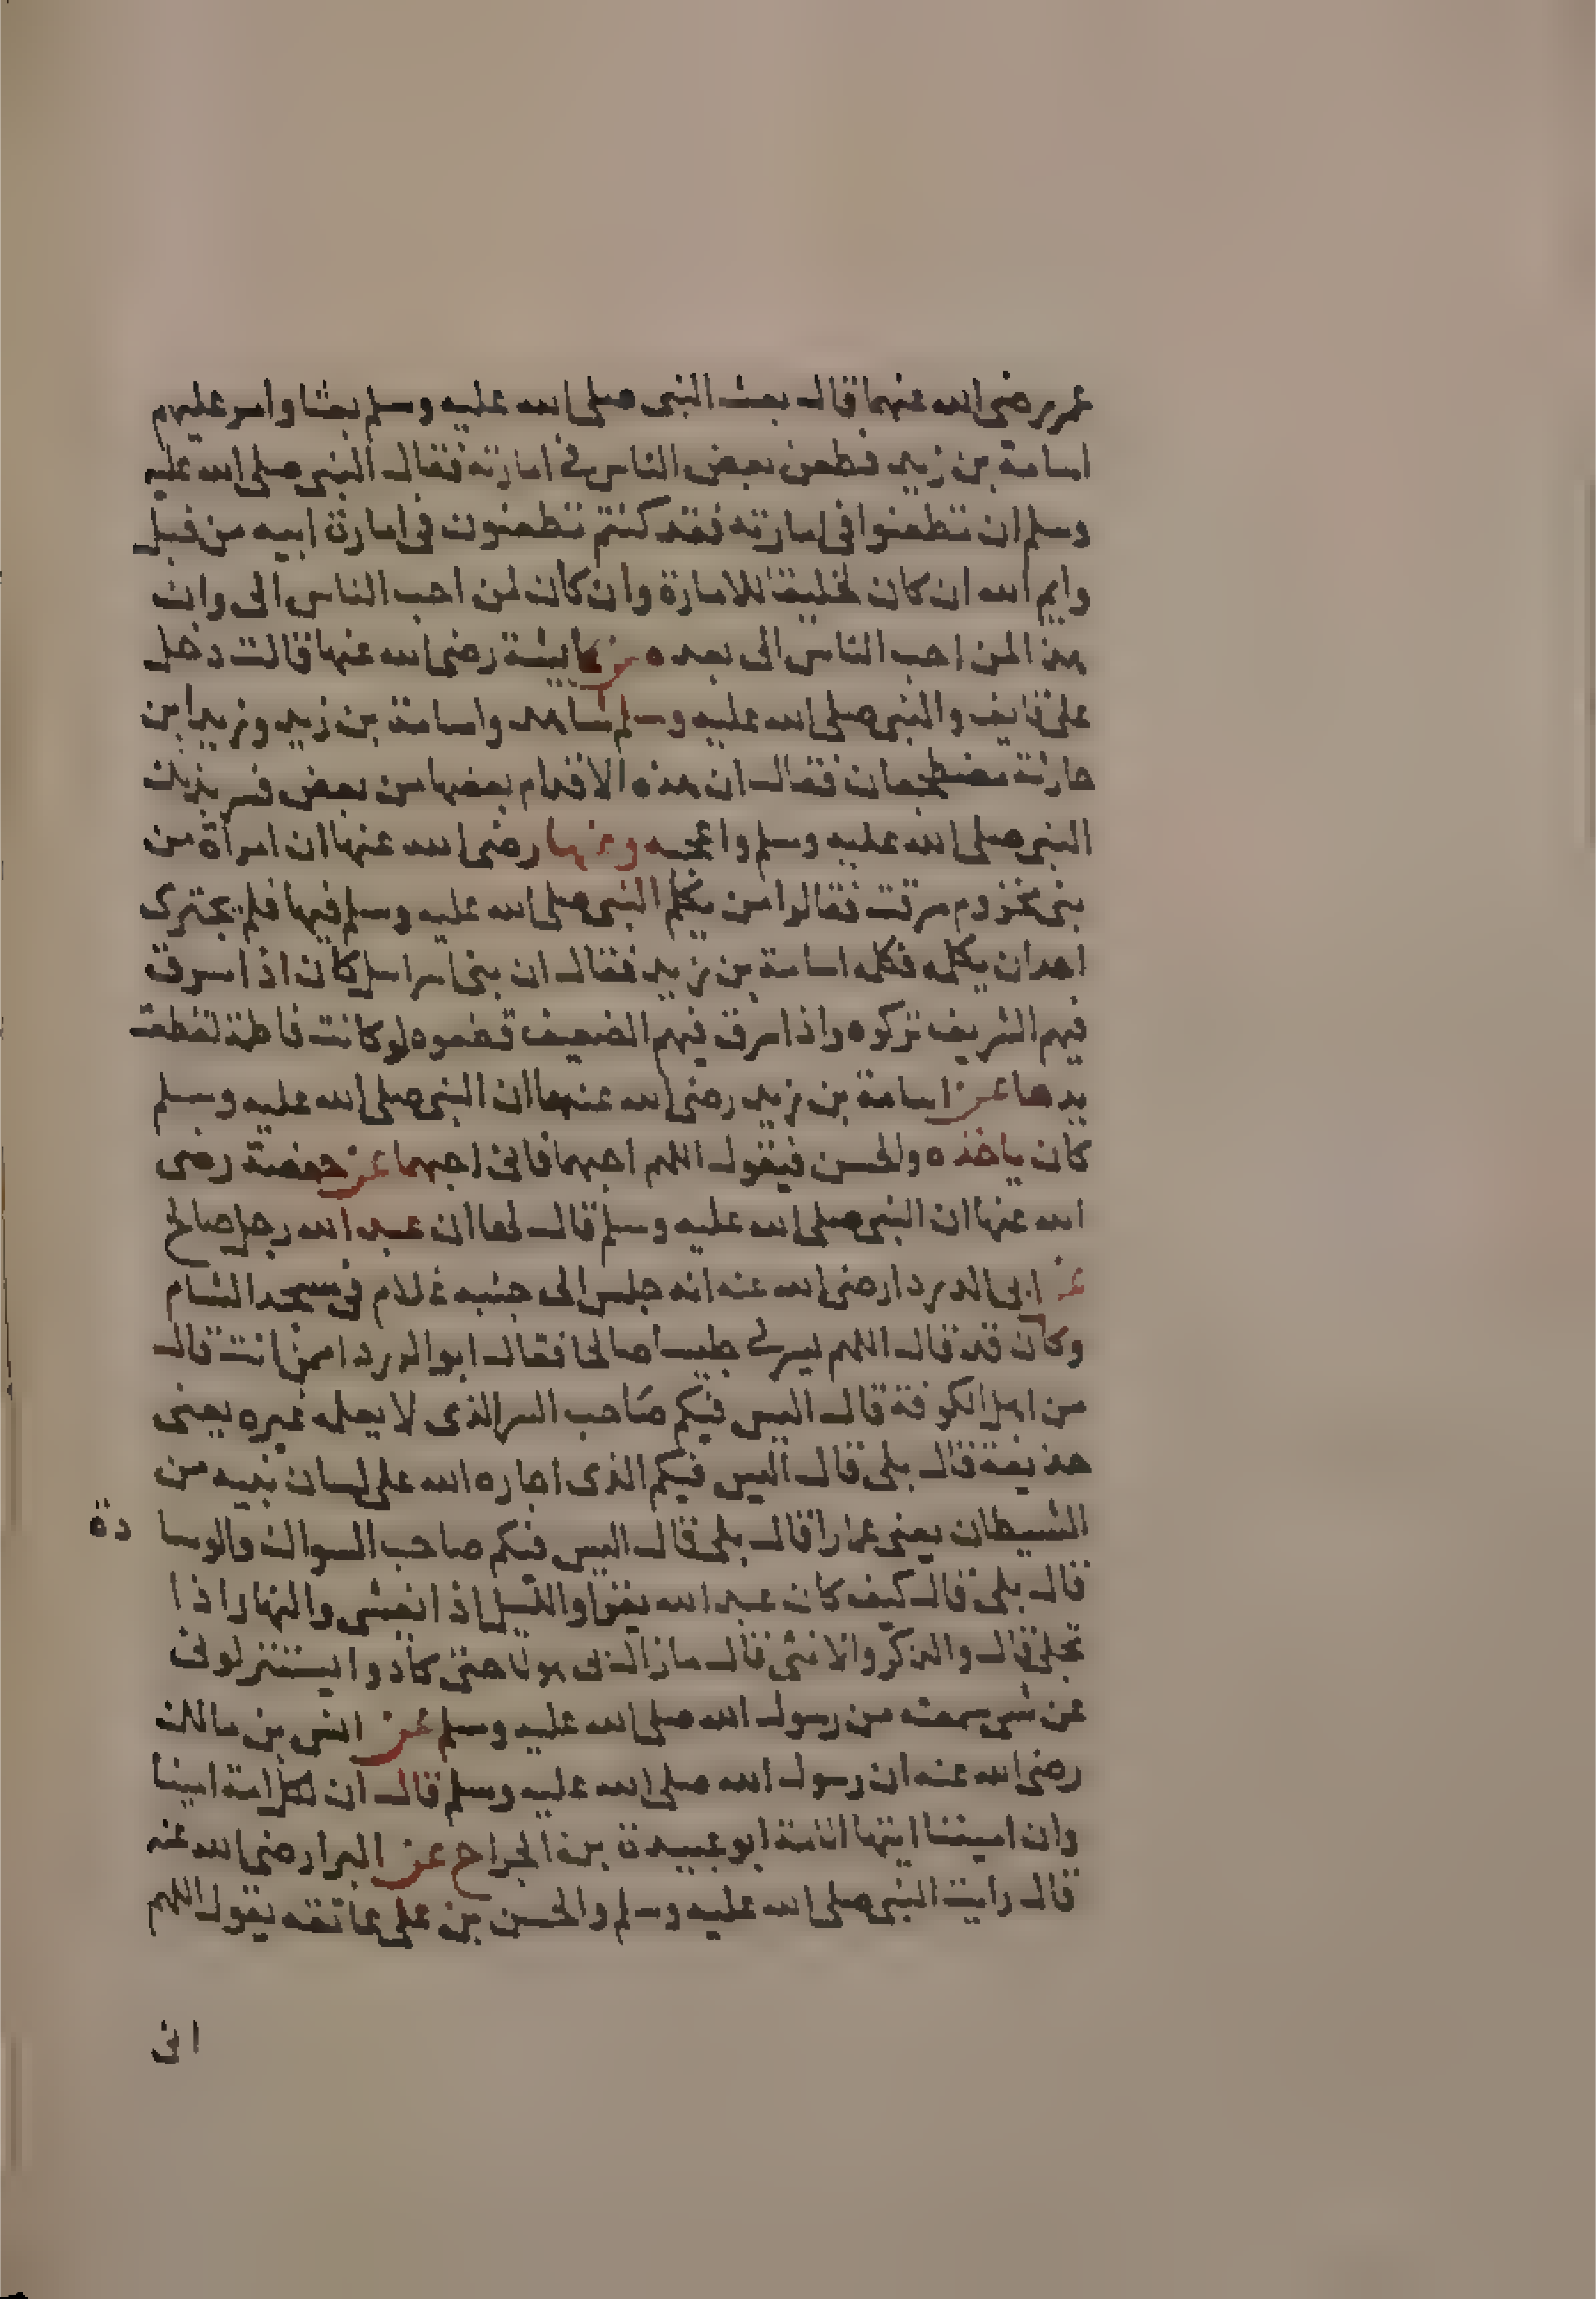 عمر رضى الله عنهما قال بعث النبى صلى الله عليه وسلم بعثا وامر عليهم
اسامة بن زيد فطعن بعض الناس فى امارته فقال النبى صلى الله عليه
وسلم ان تطعنوا فى امارته فقد كنتم تطعنون فى امارة ابيه من قبل
وايم الله ان كان لخليقا للامارة وان كان لمن احب الناس الى وان
هذا لمن احب الناس الى بعده عن عايشة رضى الله عنها قالت دخل
على قايف والنبى صلى الله عليه وسلم شاهد واسامة بن زيد وزيد ابن
حارثة مضطجعان فقال ان هذه الاقدام بعضها من بعض فسر بذلك
النبى صلى الله عليه وسلم واعجبه وعنها رضى الله عنها ان امراة من
بنى مخزوم سرقت فقالوا من يكلم النبى صلى الله عليه وسلم فيها فلم يجترى
احد ان يكلمه فكلمه اسامة بن زيد فقال ان بنى اسراىل كان اذا سرق
فيهم الشريف تركوه واذا سرق فيهم الضعيف قطعوه لو كانت فاطمة لقطعت
يدها عن اسامة بن زيد رضى الله عنهما ان النبى صلى الله عليه وسلم
كان ياخذه والحسن فيقول اللهم احبهما فانى احبهما عن حفصة رضى
الله عنها ان النبى صلى الله عليه وسلم قال لها ان عبد الله رجل صالح
عن ابى الدردا رضى الله عنه انه جلس الى جنبه غلام فى مسجد الشام
وكان قد قال اللهم يسر لى جليسا صالحا فقال ابو الدردا ممن انت قال
من اهل الكوفة قال اليس فيكم صاحب السر الذى لا يعلمه غيره يعنى
حذيفة قال بلى قال اليس فيكم الذى اجاره الله على لسان نبيه من
الشيطان يعنى عمارا قال بلى قال اليس فيكم صاحب السواك والوسادة
قال بلى قال كيف كان عبد الله يقرا والليل اذا يغشى والنهار اذا
تجلى قال والذكر والانثى قال ما زال بى هولا حتى كادوا يستنزلونى
عن شى سمعته من رسول الله صلى الله عليه وسلم عن انس بن مالك
رضى الله عنه ان رسول الله صلى الله عليه وسلم قال ان لكل امة امينا
وان اميننا ايتها الامة ابو عبيدة بن الجراح عن البرا رضى الله عنه
قال رايت النبى صلى الله عليه وسلم والحسن بن على على عاتقه يقول اللهم
انى